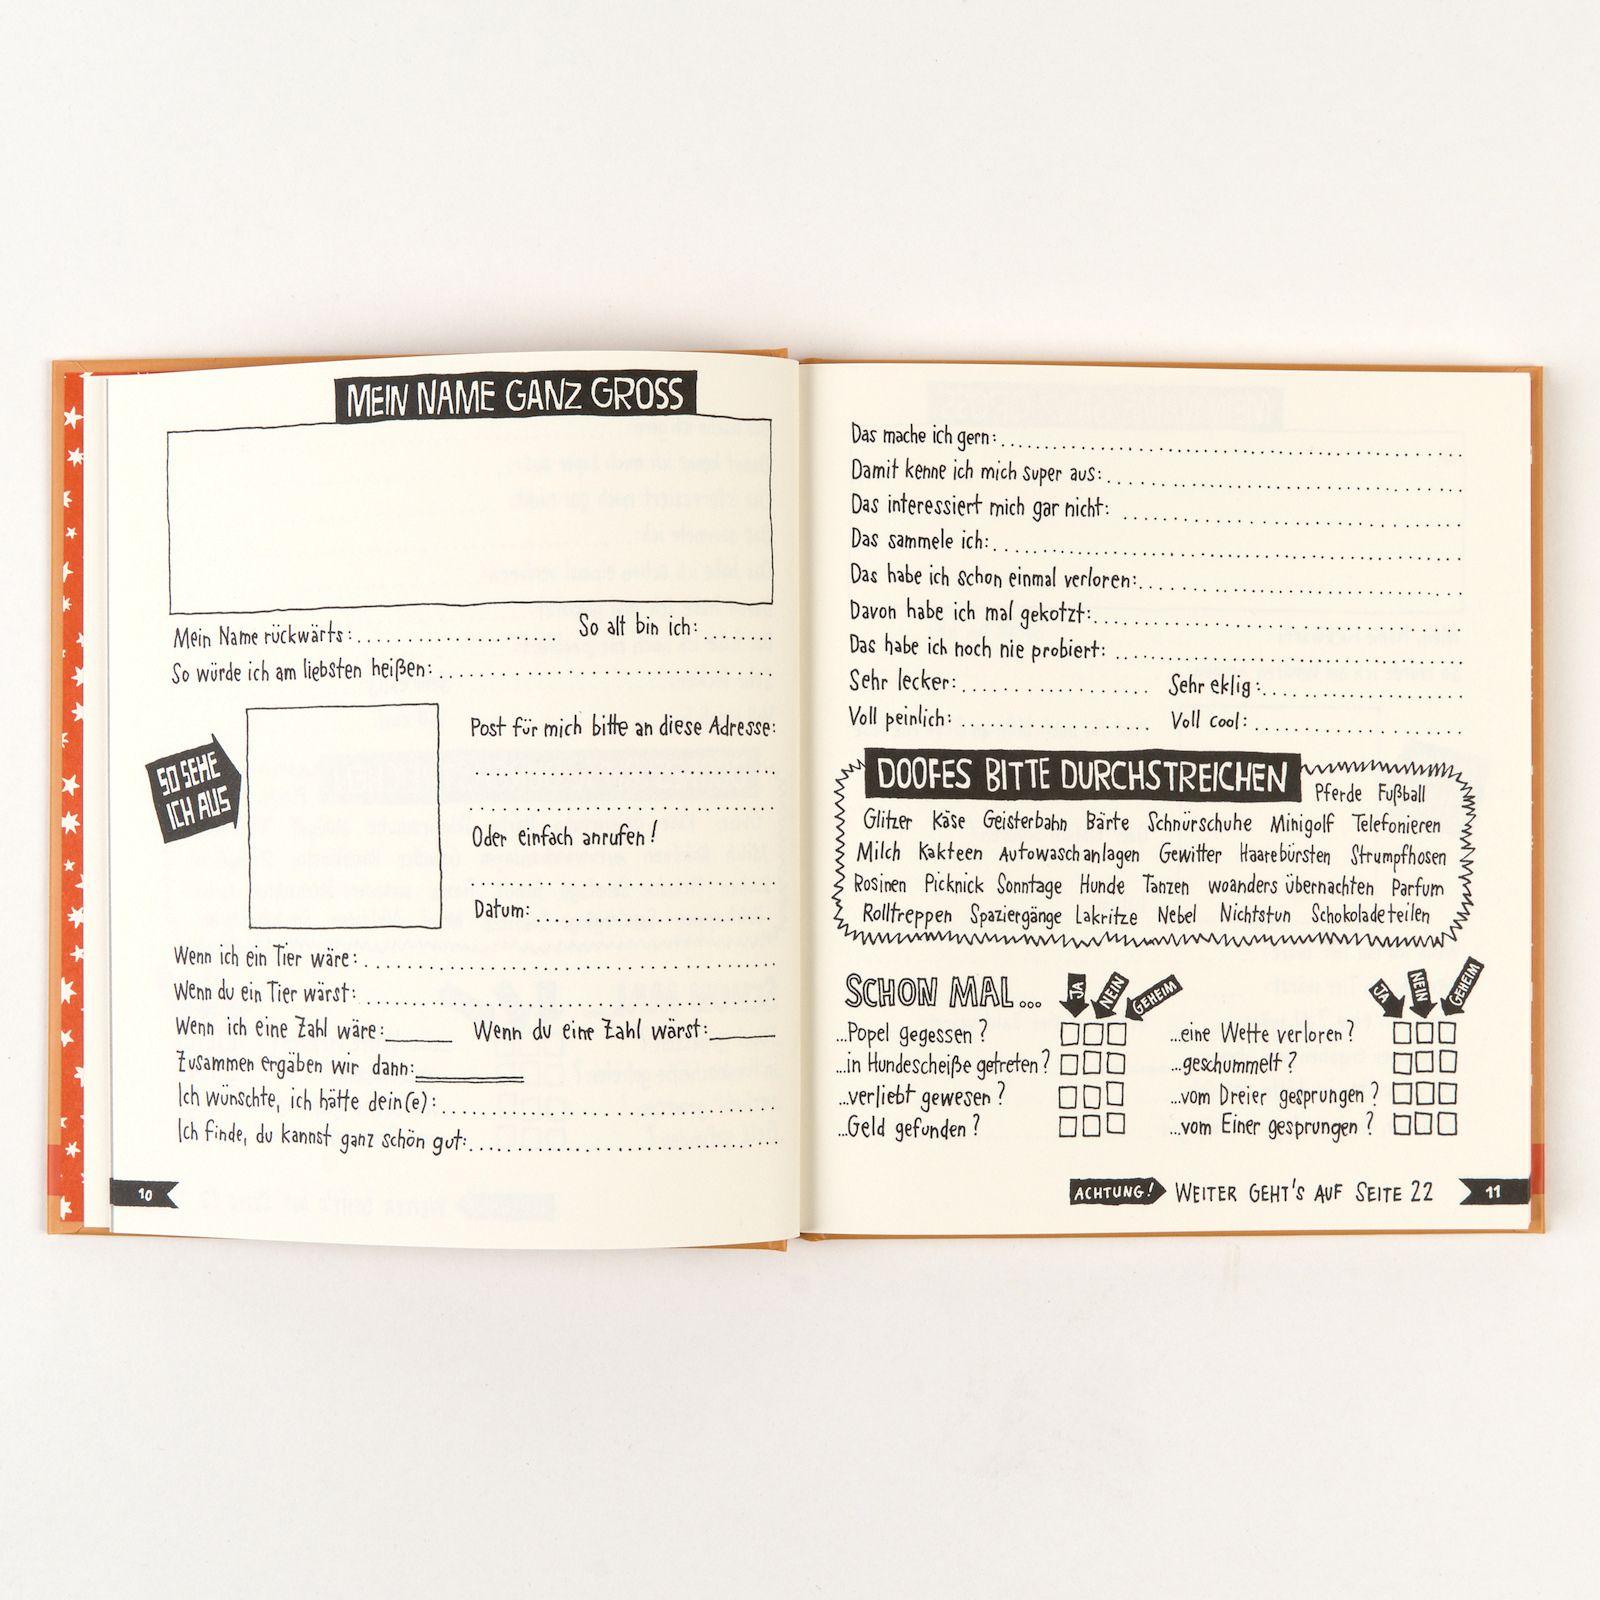 MEIN NAME GANZ GROSS
Mein Name rückwärts: So alt bin ich:
So würde ich am liebsten heißen:
SO SEHE
ICH AUS
Post für mich bitte an diese Adresse:
Oder einfach anrufen!
Datum:
Wenn ich ein Tier wäre:
Wenn du ein Tier wärst:
Wenn ich eine Zahl wäre: Wenn du eine Zahl wärst:
Zusammen ergäben wir dann:
Ich wünschte, ich hätte dein(e):
Ich finde, du kannst ganz schön gut:
10
Das mache ich gern:
Damit kenne ich mich super aus:
Das interessiert mich gar nicht:
Das sammele ich:
Das habe ich schon einmal verloren:
Davon habe ich mal gekotzt:
Das habe ich noch nie probiert:
Sehr lecker: Sehr eklig:
Voll peinlich: Voll cool:
DOOFES BITTE DURCHSTREICHEN
Pferde Fußball
Glitzer Käse Geisterbahn Bärte Schnürschuhe Minigolf Telefonieren
Milch Kakteen Autowaschanlagen Gewitter Haarebürsten Strumpfhosen
Rosinen Picknick Sonntage Hunde Tanzen woanders übernachten Parfum
Rolltreppen Spaziergänge Lakritze Nebel Nichtstun Schokolade teilen
SCHON MAL... JA NEIN GEHEIM JA NEIN GEHEIM
...Popel gegessen? ...eine Wette verloren?
...in Hundescheiße getreten? ...geschummelt?
...verliebt gewesen? ...vom Dreier gesprungen?
...Geld gefunden? ...vom Einer gesprungen?
ACHTUNG! WEITER GEHT'S AUF SEITE 22 11